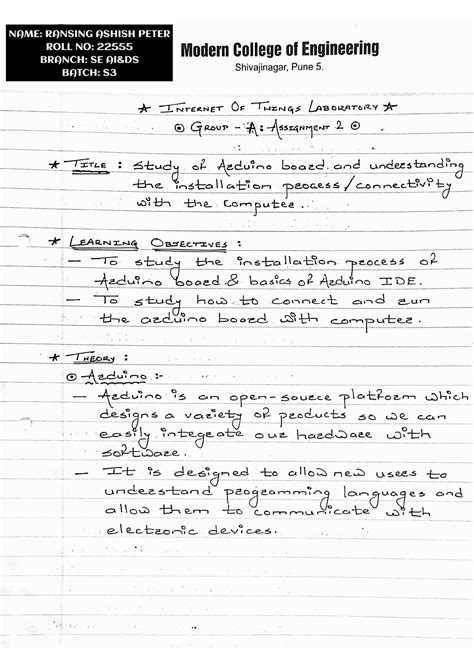 NAME: RANSING ASHISH PETER
ROLL NO: 22555
BRANCH: SE AI&DS
BATCH: S3
Modern College of Engineering
Shivajinagar, Pune 5.
★ INTERNET OF THINGS LABORATORY ★
⊙ GROUP - A: ASSIGNMENT 2 ⊙
★ TITLE : Study of Arduino board and understanding
the installation process/connectivity
with the computer.
★ LEARNING OBJECTIVES :
- To study the installation process of
Arduino board & basics of Arduino IDE.
- To study how to connect and run
the arduino board with computer.
★ THEORY :
⊙ Arduino :-
- Arduino is an open-source platform which
designs a variety of products so we can
easily integrate our hardware with
software.
- It is designed to allow new users to
understand programming languages and
allow them to communicate with
electronic devices.